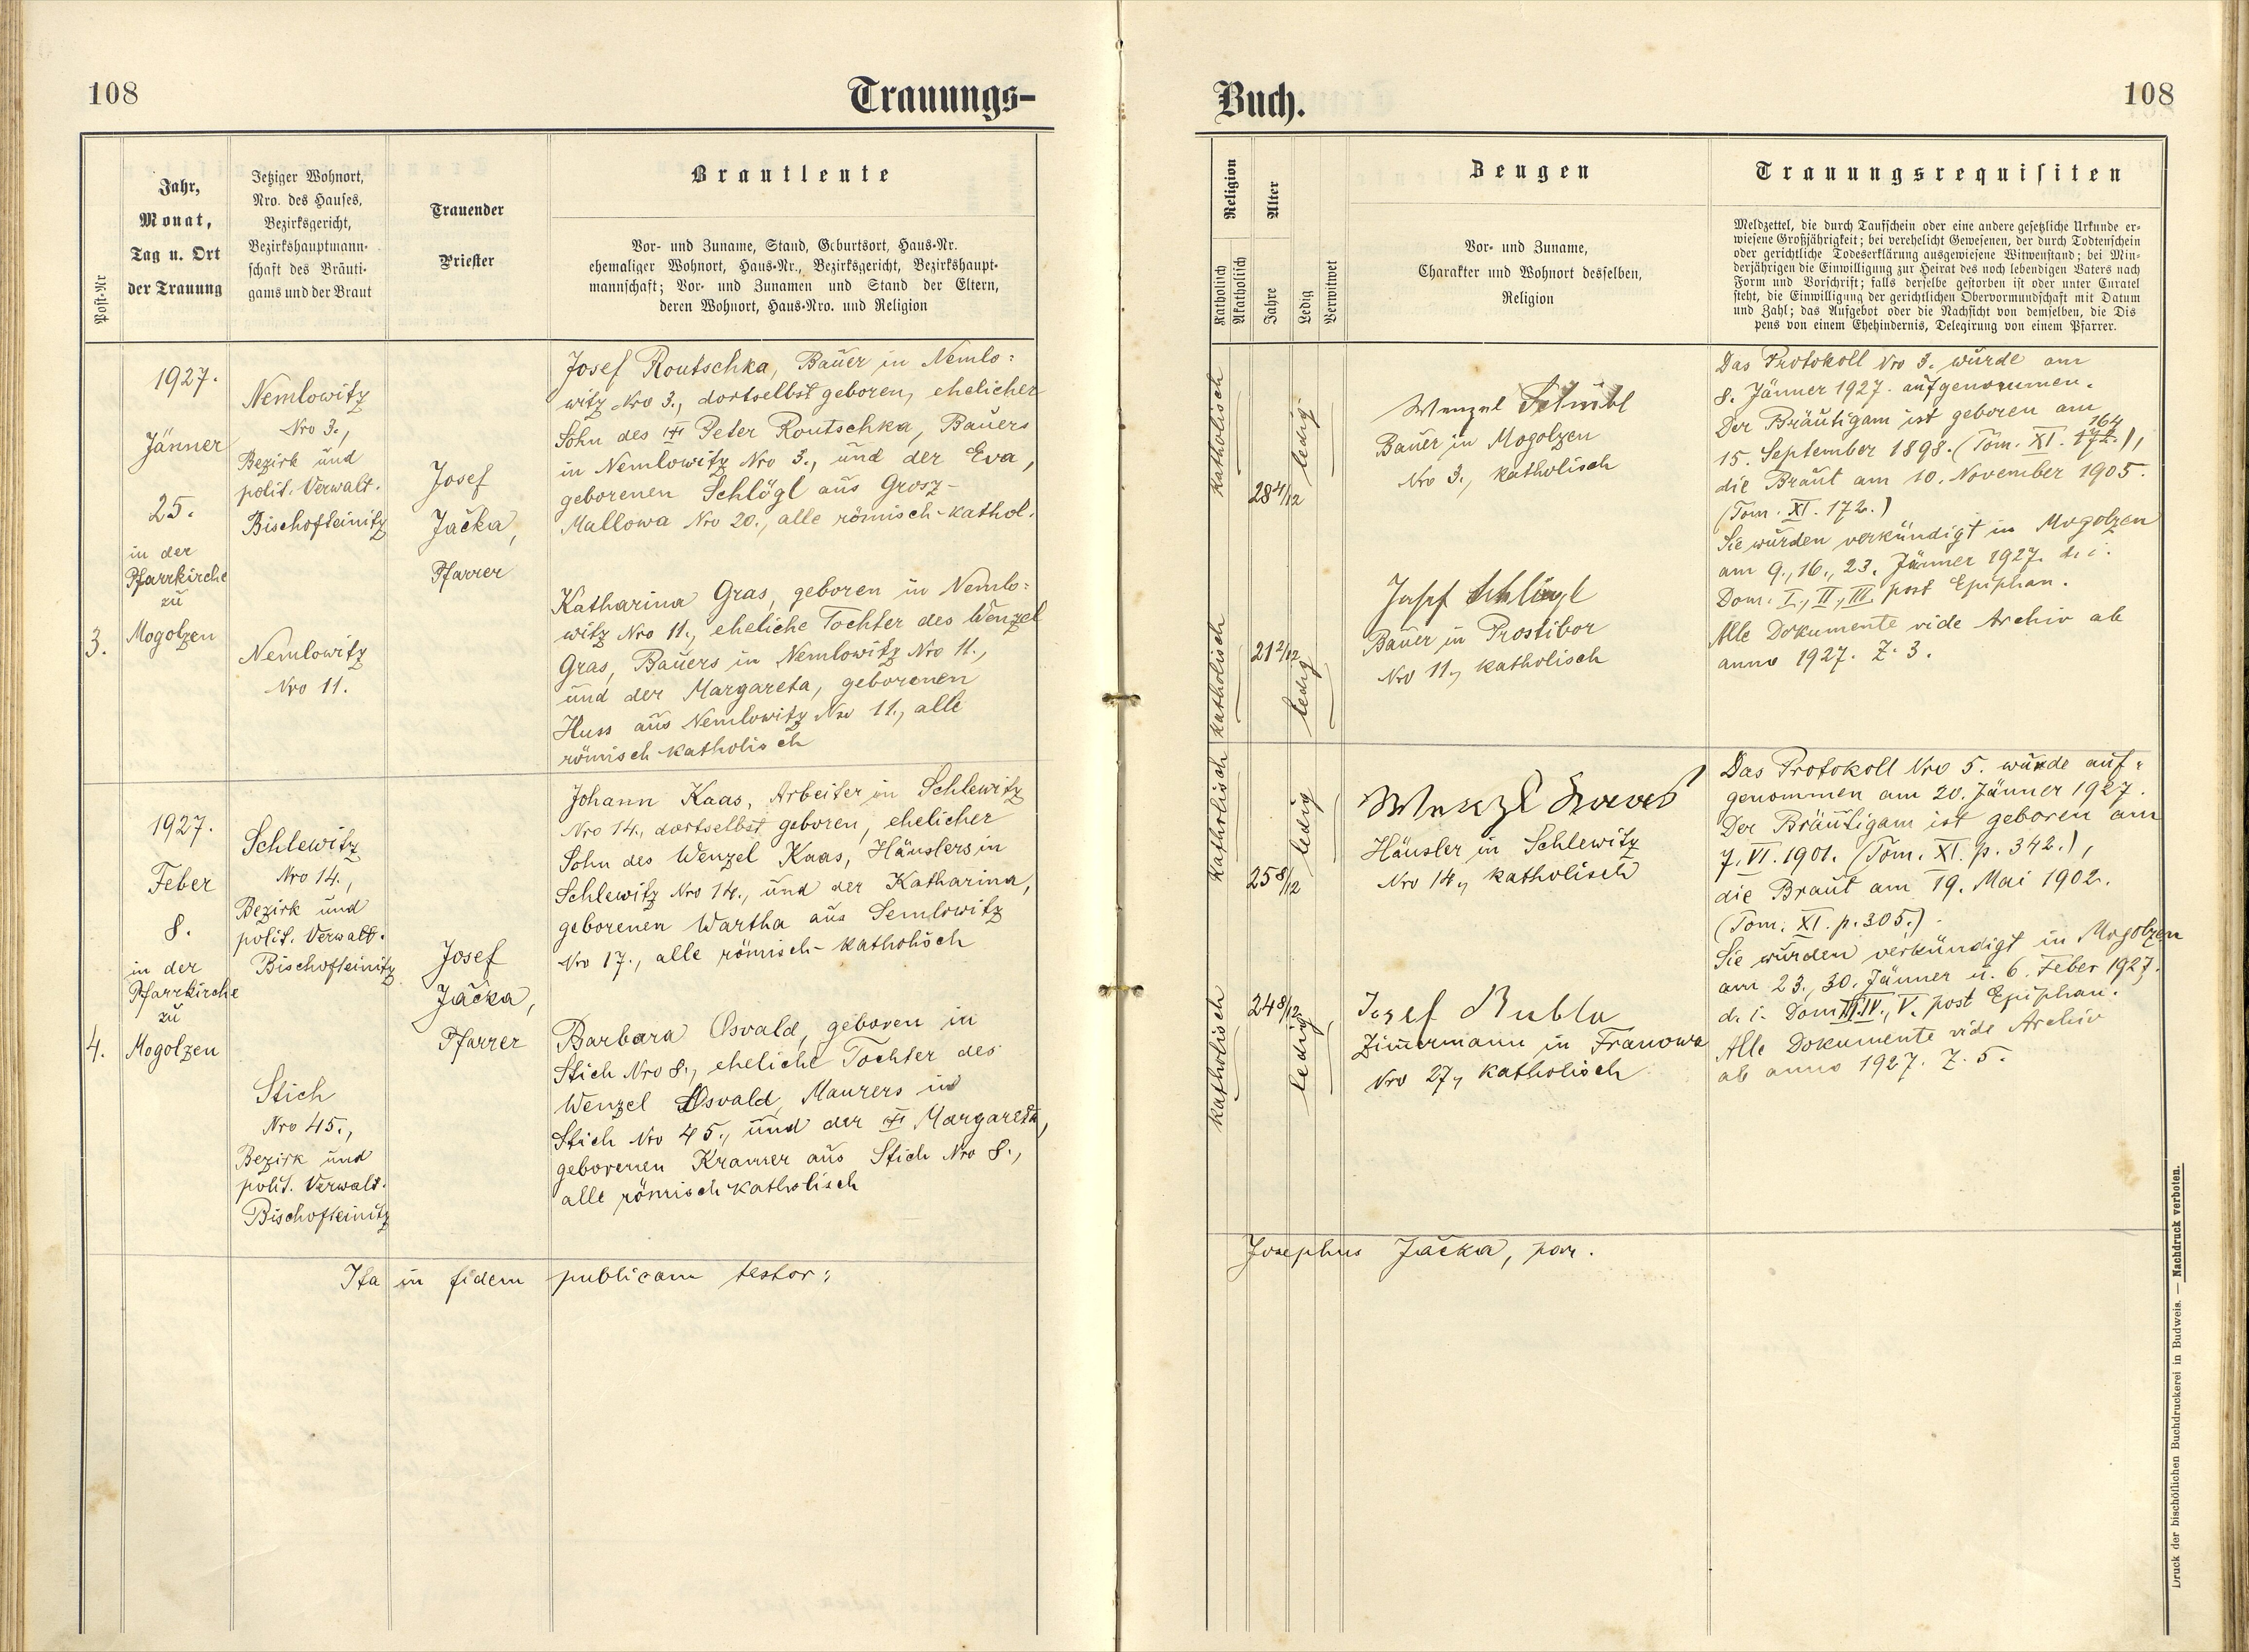 108
Trauungs-
Post-Nr
Jahr,
Monat,
Tag u. Ort
der Trauung
Jetziger Wohnort,
Nro. des Hauses,
Bezirksgericht,
Bezirkshauptmann-
schaft des Bräuti-
gams und der Braut
Trauender
Priester
Brautleute
Vor- und Zuname, Stand, Geburtsort, Haus-Nr.
ehemaliger Wohnort, Haus-Nr., Bezirksgericht, Bezirkshaupt-
mannschaft; Vor- und Zunamen und Stand der Eltern,
deren Wohnort, Haus-Nro. und Religion
3.
1927.
Jänner
25.
in der
Pfarrkirche
zu
Mogolzen
Nemlowitz
Nro 3.,
Bezirk und
polit. Verwalt.
Bischofteinitz
Nemlowitz
Nro 11.
Josef
Jačka,
Pfarrer
Josef Routschka, Bauer in Nemlo=
witz Nro 3., dortselbst geboren, ehelicher
Sohn des Peter Routschka, Bauers
in Nemlowitz Nro 3., und der Eva,
geborenen Schlögl aus Grosz-
Mallowa Nro 20., alle römisch-kathol.
Katharina Gras, geboren in Nemlo=
witz Nro 11., eheliche Tochter des Wenzel
Gras, Bauers in Nemlowitz Nro 11.,
und der Margareta, geborenen
Huss aus Nemlowitz Nro 11., alle
römisch-katholisch
4.
1927.
Feber
8.
in der
Pfarrkirche
zu
Mogolzen
Schlewitz
Nro 14.,
Bezirk und
polit. Verwalt.
Bischofteinitz
Stich
Nro 45.,
Bezirk und
polit. Verwalt.
Bischofteinitz
Josef
Jačka,
Pfarrer
Johann Kaas, Arbeiter in Schlewitz
Nro 14., dortselbst geboren, ehelicher
Sohn des Wenzel Kaas, Häuslers in
Schlewitz Nro 14., und der Katharina,
geborenen Wartha aus Semlowitz
Nro 17., alle römisch-katholisch
Barbara Osvald, geboren in
Stich Nro 8., eheliche Tochter des
Wenzel Osvald, Maurers in
Stich Nro 45., und der Margareta,
geborenen Kramer aus Stich Nro 8.,
alle römisch-katholisch
Ita in fidem publicam testor:
Buch.
108
Religion
Katholisch
Akatholisch
Alter
Jahre
Ledig
Verwitwet
Zeugen
Vor- und Zuname,
Charakter und Wohnort desselben,
Religion
Trauungsrequisiten
Meldzettel, die durch Taufschein oder eine andere gesetzliche Urkunde er-
wiesene Großjährigkeit; bei verehelicht Gewesenen, der durch Todtenschein
oder gerichtliche Todeserklärung ausgewiesene Witwenstand; bei Min-
derjährigen die Einwilligung zur Heirat des noch lebendigen Vaters nach
Form und Vorschrift; falls derselbe gestorben ist oder unter Curatel
steht, die Einwilligung der gerichtlichen Obervormundschaft mit Datum
und Zahl; das Aufgebot oder die Nachsicht von demselben, die Dis
pens von einem Ehehindernis, Delegirung von einem Pfarrer.
katholisch
28 4/12
ledig
katholisch
21 2/12
ledig
Wenzel
Bauer in Mogolzen
Nro 3., katholisch
Josef Schlögl
Bauer in Prostibor
Nro 11., katholisch
Das Protokoll Nro 3. wurde am
8. Jänner 1927. aufgenommen.
Der Bräutigam ist geboren am
164
15. September 1898. (Tom. XI. 172.),
die Braut am 10. November 1905.
(Tom. XI. 172.)
Sie wurden verkündigt in Mogolzen
am 9., 16., 23. Jänner 1927. d. i.
Dom. I., II., III. post Epiphan.
Alle Dokumente vide Archiv ab
anno 1927. Z. 3.
katholisch
25 8/12
ledig
katholisch
24 8/12
ledig
Wenzl Kaas
Häusler in Schlewitz
Nro 14., katholisch
Josef Bubla
Zimmermann in Franowa
Nro 27., katholisch
Das Protokoll Nro 5. wurde auf=
genommen am 20. Jänner 1927.
Der Bräutigam ist geboren am
7. VI. 1901. (Tom. XI. p. 342.),
die Braut am 19. Mai 1902.
(Tom. XI. p. 305.)
Sie wurden verkündigt in Mogolzen
am 23., 30. Jänner u. 6. Feber 1927.
d. i. Dom III. IV., V. post Epiphan.
Alle Dokumente vide Archiv
ab anno 1927. Z. 5.
Josephus Jačka, par.
Druck der bischöflichen Buchdruckerei in Budweis. — Nachdruck verboten.